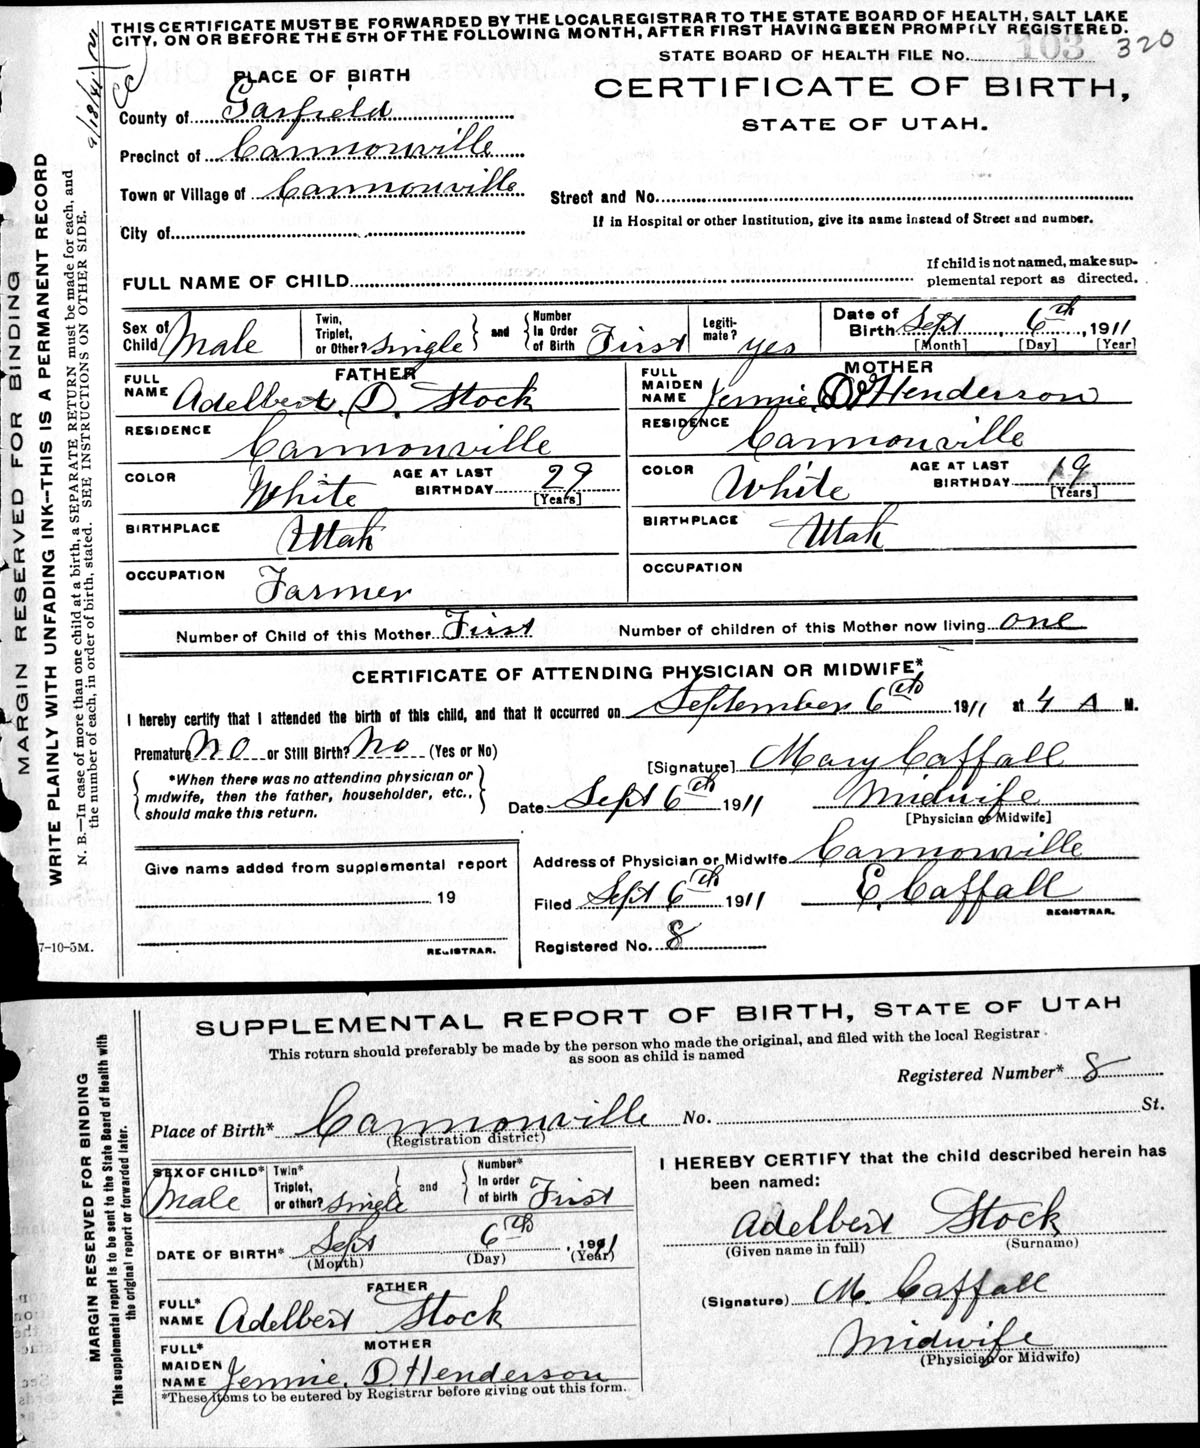 THIS CERTIFICATE MUST BE FORWARDED BY THE LOCAL REGISTRAR TO THE STATE BOARD OF HEALTH, SALT LAKE
CITY, ON OR BEFORE THE 5TH OF THE FOLLOWING MONTH, AFTER FIRST HAVING BEEN PROMPTLY REGISTERED.
STATE BOARD OF HEALTH FILE No. 103 320
PLACE OF BIRTH
CERTIFICATE OF BIRTH,
STATE OF UTAH.
County of Garfield
Precinct of Cannonville
Town or Village of Cannonville
Street and No.
If in Hospital or other Institution, give its name instead of Street and number.
City of
FULL NAME OF CHILD
If child is not named, make sup-
plemental report as directed.
Sex of Child Male
Twin, Triplet, or Other? Single and Number In Order of Birth First
Legiti-mate? yes
Date of Birth Sept 6th, 1911
[Month] [Day] [Year]
FATHER
FULL NAME Adelbert D. Stock
RESIDENCE Cannonville
COLOR White AGE AT LAST BIRTHDAY 29 [Years]
BIRTHPLACE Utah
OCCUPATION Farmer
MOTHER
FULL MAIDEN NAME Jennie D Henderson
RESIDENCE Cannonville
COLOR White AGE AT LAST BIRTHDAY 19 [Years]
BIRTHPLACE Utah
OCCUPATION
Number of Child of this Mother First Number of children of this Mother now living one
CERTIFICATE OF ATTENDING PHYSICIAN OR MIDWIFE*
I hereby certify that I attended the birth of this child, and that it occurred on September 6th 1911 at 4 A M.
Premature No or Still Birth? No (Yes or No)
[Signature] Mary Caffall
*When there was no attending physician or
midwife, then the father, householder, etc.,
should make this return.
Date Sept 6th 1911 Midwife
[Physician or Midwife]
Give name added from supplemental report
19
REGISTRAR.
Address of Physician or Midwife Cannonville
Filed Sept 6th 1911 E. Caffall
REGISTRAR.
Registered No. 8
7-10-5M.
MARGIN RESERVED FOR BINDING
WRITE PLAINLY WITH UNFADING INK--THIS IS A PERMANENT RECORD
N. B.—In case of more than one child at a birth, a SEPARATE RETURN must be made for each, and
the number of each, in order of birth, stated. SEE INSTRUCTIONS ON OTHER SIDE.
SUPPLEMENTAL REPORT OF BIRTH, STATE OF UTAH
This return should preferably be made by the person who made the original, and filed with the local Registrar
as soon as child is named
Registered Number* 8
Place of Birth* Cannonville No. St.
(Registration district)
SEX OF CHILD* Male
Twin* Triplet, or other? Single and Number* In order of birth First
DATE OF BIRTH* Sept 6th, 1911
(Month) (Day) (Year)
FATHER
FULL* NAME Adelbert Stock
MOTHER
FULL* MAIDEN NAME Jennie. D. Henderson
*These items to be entered by Registrar before giving out this form.
I HEREBY CERTIFY that the child described herein has
been named:
Adelbert Stock
(Given name in full) (Surname)
(Signature) M. Caffall
Midwife
(Physician or Midwife)
MARGIN RESERVED FOR BINDING
This supplemental report is to be sent to the State Board of Health with
the original report or forwarded later.